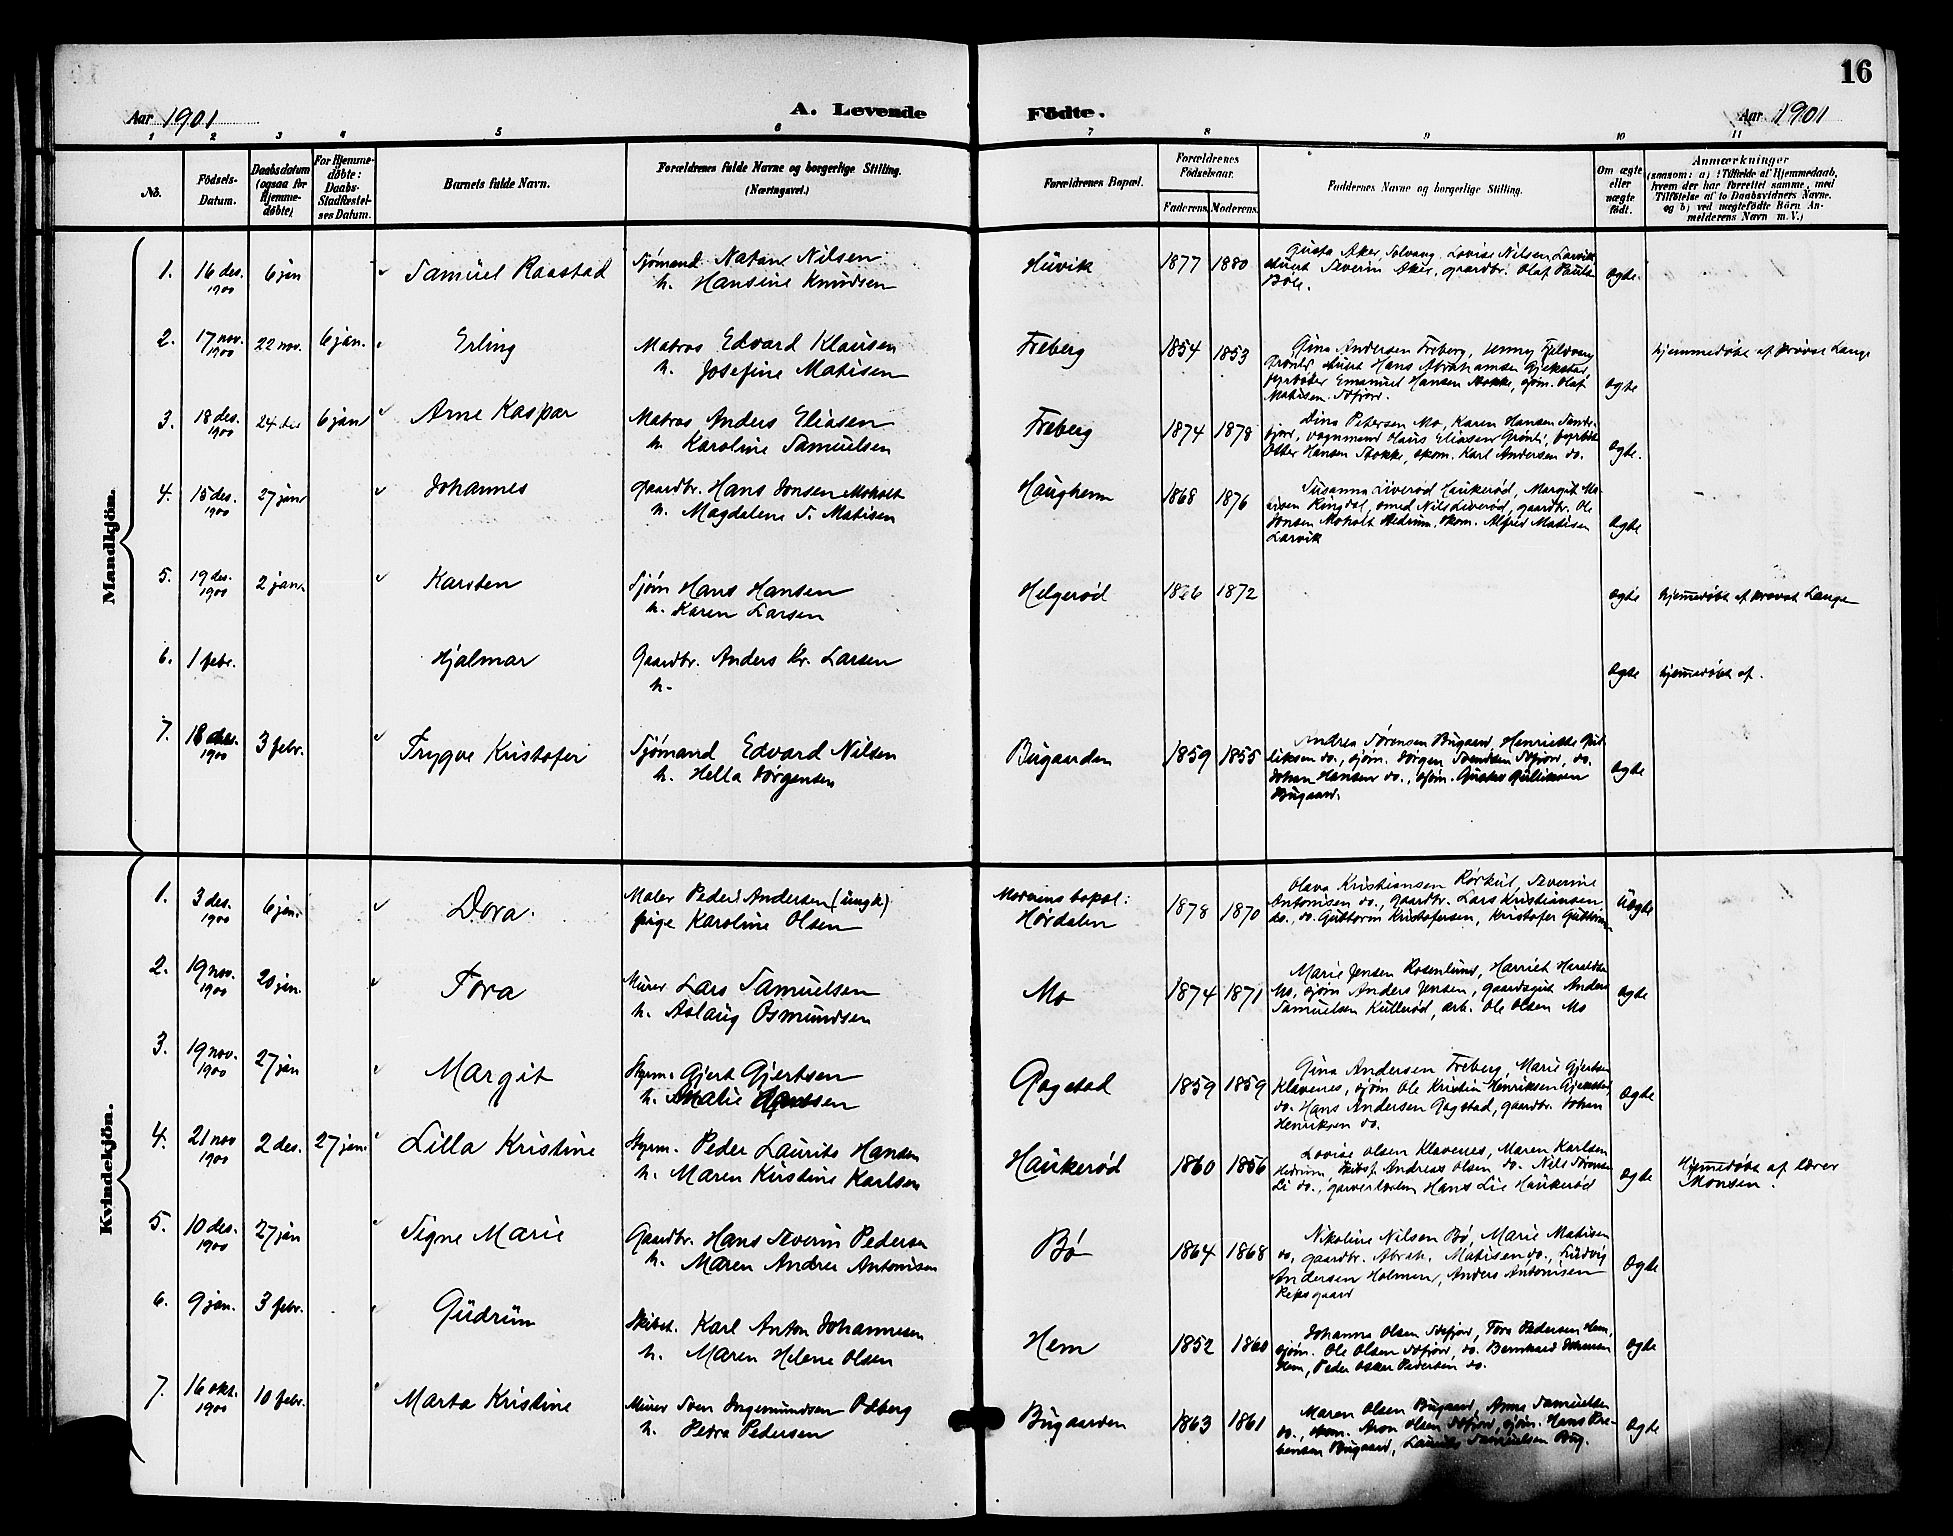 16
Aar 1901
A. Levende Födte.
Aar 1901
1 2 3 4 5 6 7 8 9 10 11
No.
Födsels-Datum.
Daabsdatum (ogsaa for Hjemme-døbte)
For Hjemme-døbte: Daabs-Stadfæstel-ses Datum.
Barnets fulde Navn.
Forældrenes fulde Navne og borgerlige Stilling. (Næringsvei.)
Forældrenes Bopæl.
Forældrenes Födselsaar.
Faderens. Moderens.
Faddernes Navne og borgerlige Stilling.
Om ægte eller uægte födt.
Anmærkninger
(saasom: a) i Tilfælde af Hjemmedaab, hvem der har forrettet samme, med Tilföielse af to Daabsvidners Navne. og b) ved uægtefödte Börn An-melderens Navn m. V.)
Mandkjön.
1. 16 des. 1900 6 jan Samuel Raastad
Sjømand Natan Nilsen
h. Hansine Knudsen
Huvik 1877 1880
Gusta Aker, Solvang, Lovise Nilsen Larvik
Severin Aker, gaardbr. Olaf Pauls
Bøle.
ægte.
2. 17 nov. 1900 22 nov. 6 jan. Erling
Matros Edvard Klausen
h. Josefine Matisen
Freberg 1854 1853
Gina Andersen Freberg, Jenny Fjeldvang
Hans Abrahamsen Gjekstad,
fyrbøter Emanuel Hansen Stokke, sjøm. Olaf
Matisen Sdfjord.
ægte
hjemmedøbt af provst Lange
3. 18 des. 1900 24 des 6 jan Arne Kaspar
Matros Anders Eliasen
h. Karoline Samuelsen
Freberg 1874 1878
Dina Petersen Mo, Karen Hansen Sande-
fjord, vognmand Hans Eliasen Grønli, fyrbøt
Otter Hansen Stokke, skom. Karl Andersen do.
ægte.
4. 15 des. 1900 27 jan Johannes
Gaardbr. Hans Jonsen Moholt
h. Magdalene S. Matisen
Haughem 1868 1876
Susanna Liverød Haukerød, Margit Ma-
tisen Ringdal, smed Nils Liverød, gaardbr. Ole
Jonsen Moholt Hedrum, skom. Alfred Matisen
Larvik
ægte
5. 19 des. 1900 2 jan. Karsten
Sjøm Hans Hansen
h. Karen Larsen
Helgerød 1872
ægte
hjemmedøbt af provst Lange
6. 1 febr. Hjalmar
Gaardbr. Anders Kr. Larsen
h.
ægte
hjemmedøbt af.
7. 18 des. 1900 3 febr. Trygve Kristofer
Sjømand Edvard Nilsen
h. Hella Jørgensen
Bugaarden 1859 1855
Andrea Sørensen Bugaard, Henriette Gul-
liksen do., sjøm. Jørgen Svendsen Sdfjord, do.
Johan Hansen do., sjøm. Gustav Gulliksen
Bugaard.
ægte
Kvindekjön.
1. 3 des. 1900 6 jan. Dora.
Maler Peder Andersen (ungk)
pige Karoline Olsen
Moderens bopæl:
Hørdalen 1878 1870
Olava Kristiansen Rørkul, Severine
Antonisen do., gaardbr. Lars Kristiansen,
do. do. Guttorm Kristofersen, Kristofer Guttormsen
Uægte
2. 19 nov. 1900 20 jan. Tora
Murer Lars Samuelsen
h. Aslaug Osmundsen
Mo 1874 1871
Marie Jensen Rosenlund, Harriet Haraldsen
Mo, sjøm Anders Jensen, gaardsgut Anders
Samuelsen Kullerød, arb. Ole Olsen Mo
ægte
3. 19 nov. 1900 27 jan Margit
Styrm. Gjert Gjertsen
h. Amalie
Gogstad 1859 1859
Gina Andersen Freberg, Marie Gjertsen
Klavenes, sjøm Ole Kristian Henriksen Gjekstad,
do. Hans Andersen Gogstad, gaardbr. Johan
Henriksen do.
ægte
4. 21 nov 1900 2 des. 27 jan. Lilla Kristine
Styrm. Peder Laurits Hansen
h. Maren Kirstine Karlsen
Haukerød 1860 1856
Lovise Olsen Klavenes, Maren Karlsen
Hedrum, skibsf. Andreas Olsen do. Nils Sørensen
Li do., garverlærlin Hans Lie Haukerød
ægte
Hjemmedøbt af lærer
Monsen.
5. 10 des. 1900 27 jan Signe Marie
Gaardbr. Hans Severin Pedersen
h. Maren Andrea Antonisen
Bø 1864 1868
Nikoline Nilsen Bø, Marie Matisen
do, gaardbr. Abrah. Matisen do., Ludvig
Andersen Holmen, Anders Antonisen
Reksgaard
ægte
6. 9 jan. 3 febr. Gudrun
Skibst. Karl Anton Johannesen
h. Maren Helene Olsen
Hem 1852 1860
Johanna Olsen Sdfjord, Tora Pedersen Hem,
sjøm. Ole Olsen Sdfjord, do. Bernhard Johansen
Hem, Peder Oskar Pedersen do.
ægte
7. 16 okt. 1900 10 febr. Marta Kristine
Murer Sven Ingemundsen Ødberg
h. Petra Pedersen
Bugaarden 1863 1861
Maren Olsen Bugaard, Anna Samuelsen
do., skom. Aron Olsen Sdfjord, sjøm. Hans Pre-
bensen Bugaard, Laurits Samuelsen Bug.
ægte